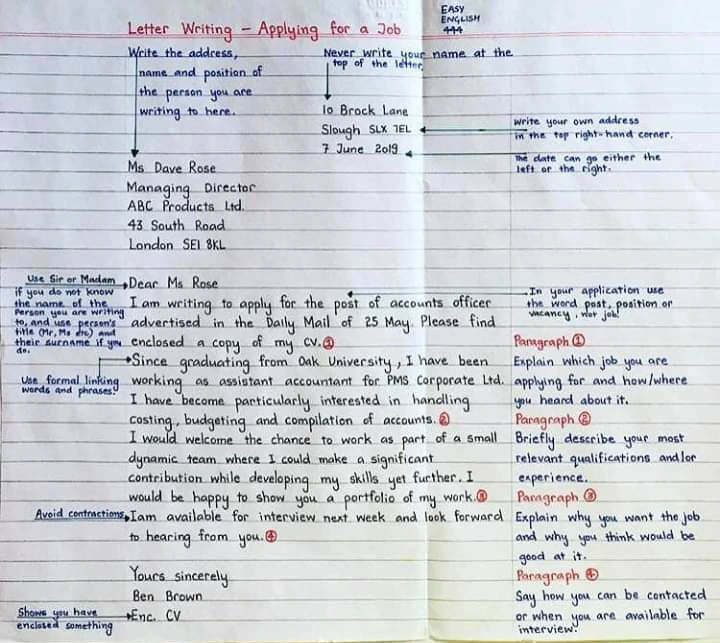 EASY
ENGLISH
444
Letter Writing – Applying for a Job
Write the address,
name and position of
the person you are
writing to here.
Never write your name at the
top of the letter
10 Brock Lane
Slough SLX 7EL
7 June 2019
Write your own address
in the top right-hand corner.
The date can go either the
left or the right.
Ms Dave Rose
Managing Director
ABC Products Ltd.
43 South Road
London SE1 8KL
Use Sir or Madam
if you do not know
the name of the
Person you are writing
to, and use person's
title (Mr, Ms etc) and
their surname if you
do.
Dear Ms Rose
I am writing to apply for the post of accounts officer
advertised in the Daily Mail of 25 May. Please find
enclosed a copy of my CV. ①
Since graduating from Oak University, I have been
working as assistant accountant for PMS Corporate Ltd.
I have become particularly interested in handling
costing, budgeting and compilation of accounts. ②
I would welcome the chance to work as part of a small
dynamic team where I could make a significant
contribution while developing my skills yet further. I
would be happy to show you a portfolio of my work. ③
Iam available for interview next week and look forward
to hearing from you. ④
Yours sincerely
Ben Brown
Enc. CV
Use formal linking
words and phrases.
Avoid contractions
Shows you have
enclosed something
In your application use
the word post, position or
vacancy, not job
Paragraph ①
Explain which job you are
applying for and how/where
you heard about it.
Paragraph ②
Briefly describe your most
relevant qualifications and/or
experience.
Paragraph ③
Explain why you want the job
and why you think would be
good at it.
Paragraph ④
Say how you can be contacted
or when you are available for
interview.